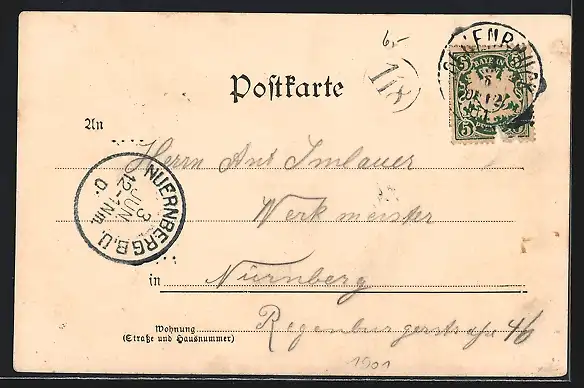 6.-
Postkarte
5 BAYERN 5
5
An
Herrn Ant Imlauer
Werkmeister
NUERNBERG B.U.
3
JUN
12-1 Nm.
0.
in Nürnberg
Wohnung
(Straße und Hausnummer)
Regensburgerstraße 46
1901